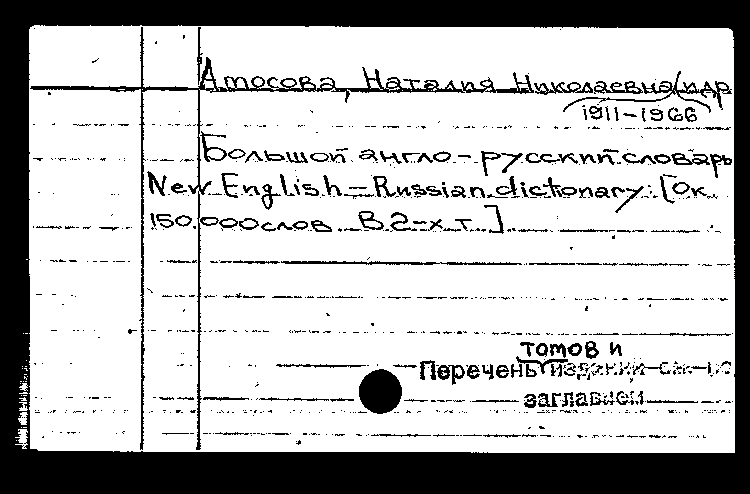 Амосова, Наталия Николаевна (и др
1911-1966
Большой англо-русский словарь
New English-Russian dictionary. [Ок.
150.000 слов. В 2-х т.]
томов и
Перечень изданий см. по
заглавием